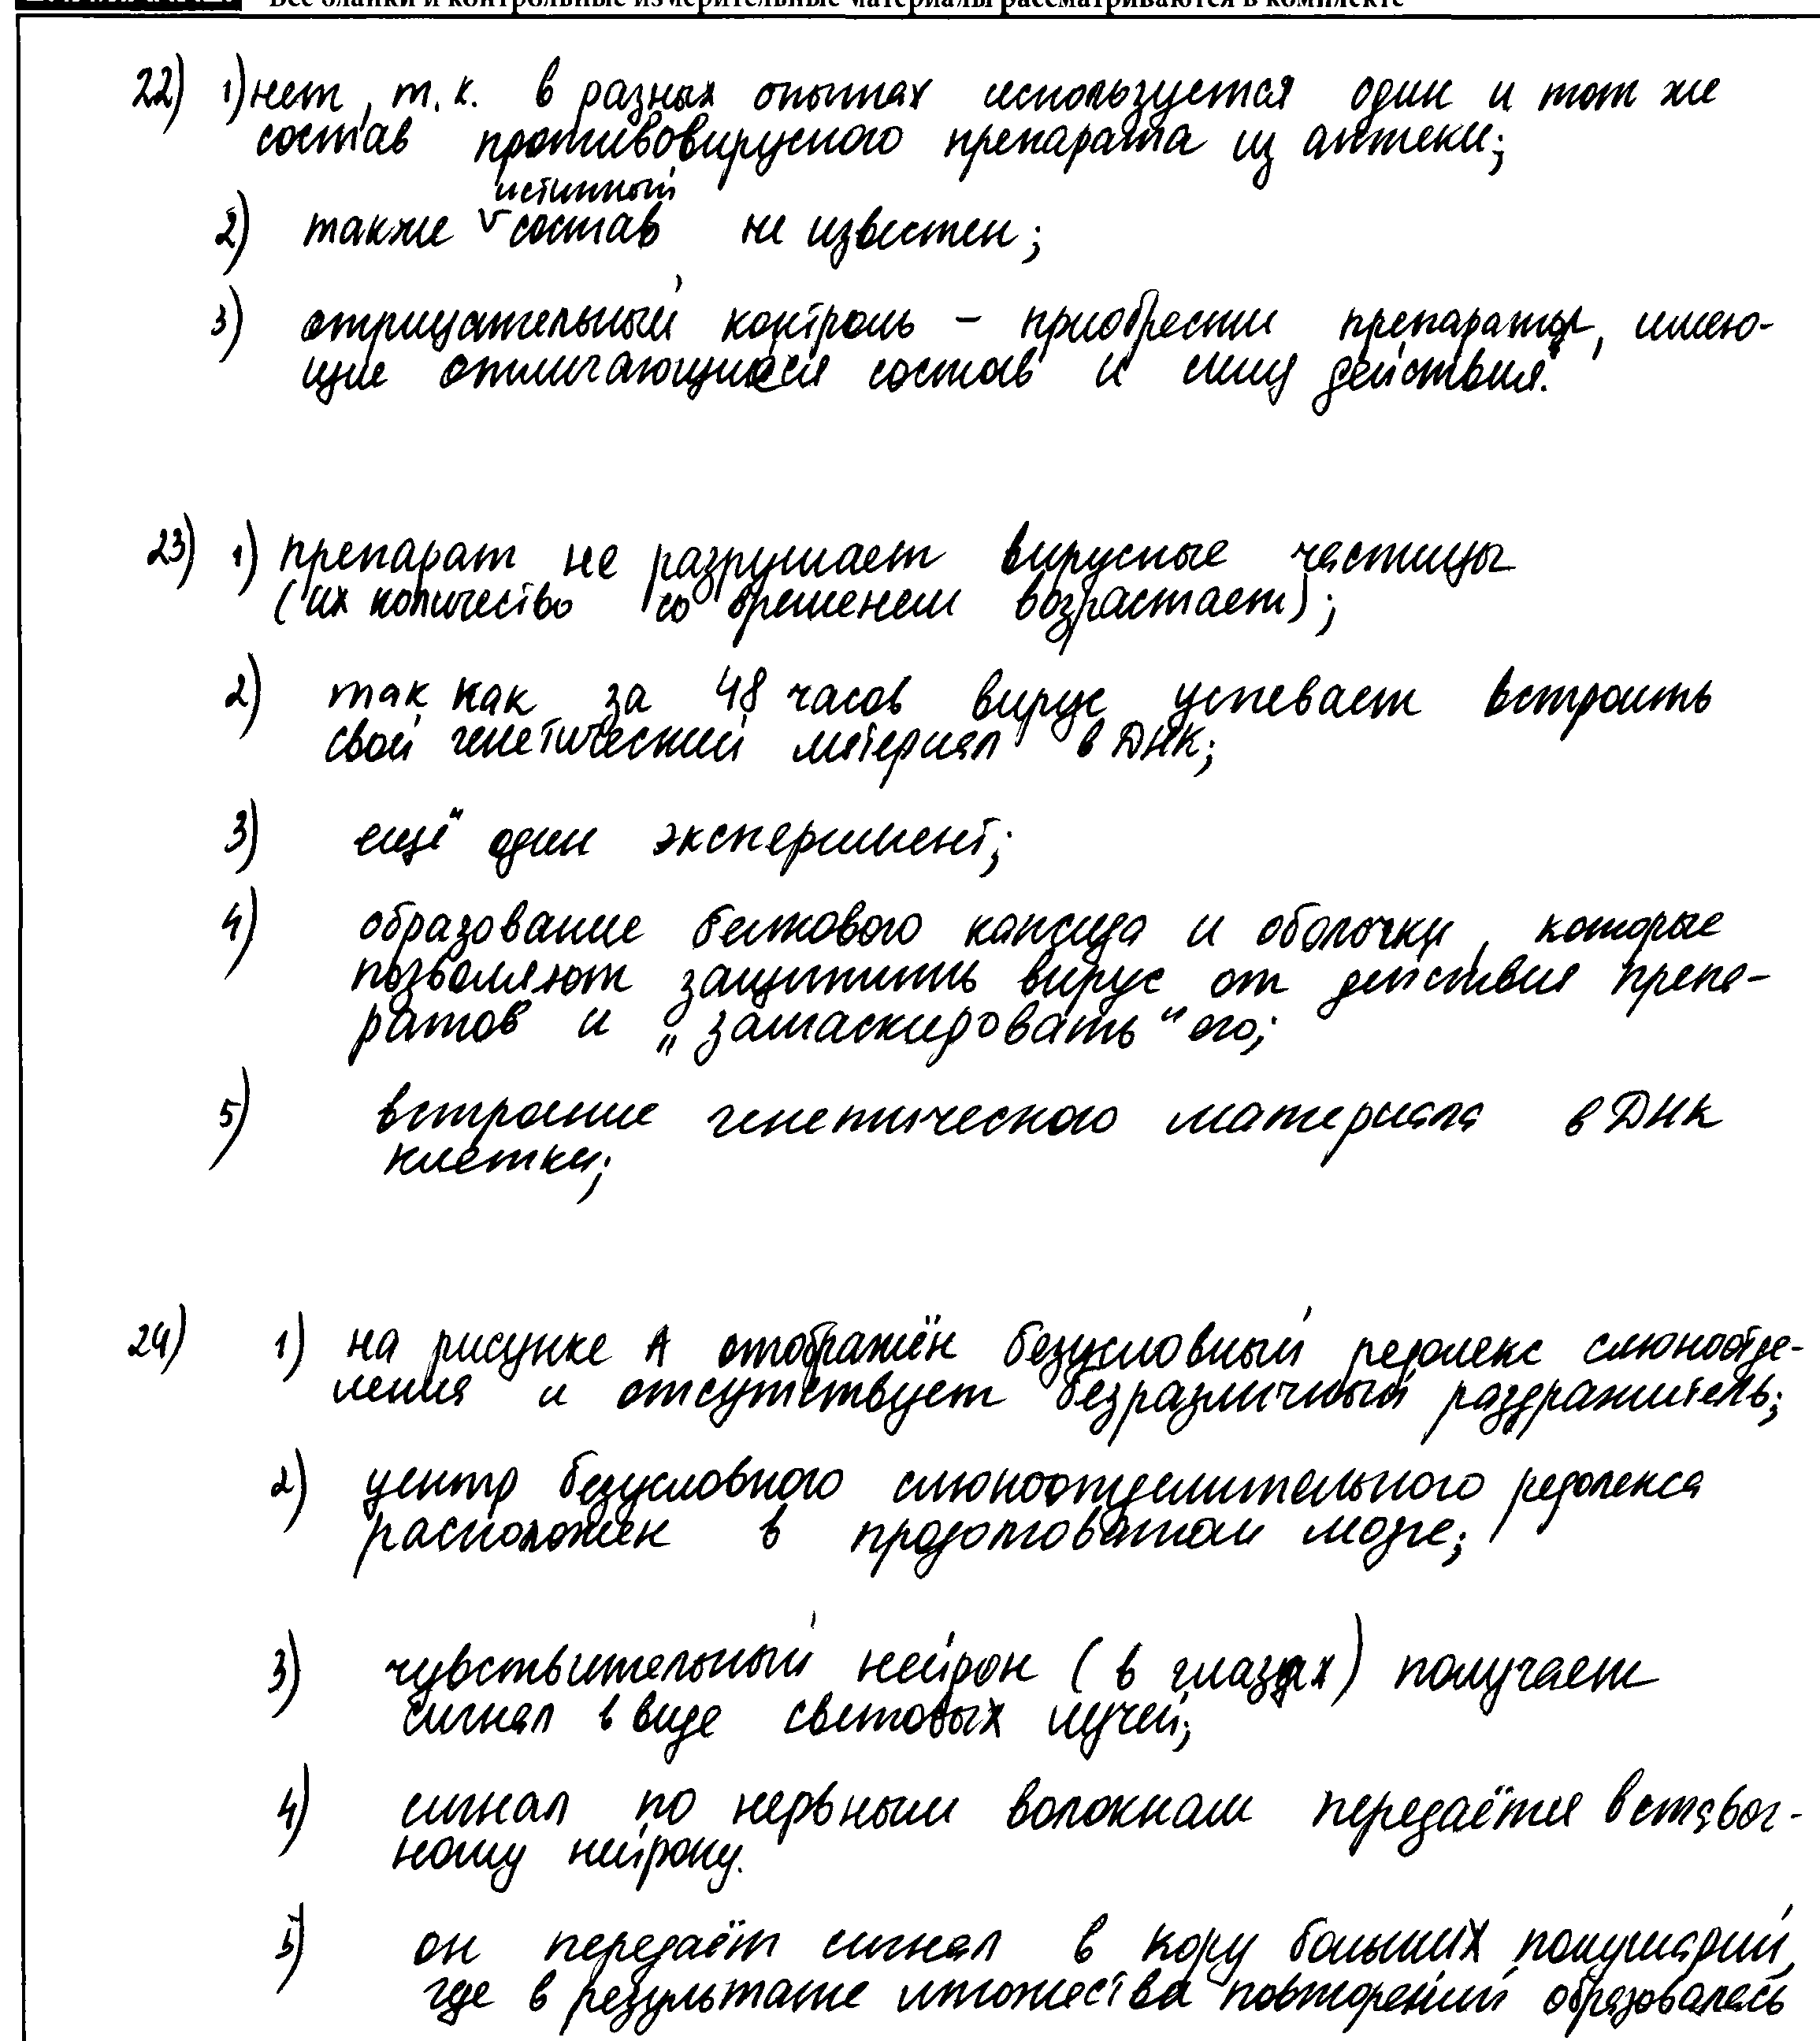 Все бланки и контрольные измерительные материалы рассматриваются в комплекте
22) 1) нет, т.к. в разных опытах используется один и тот же
состав противовирусного препарата из аптеки;
истинный
2) также v состав не известен;
3) отрицательный контроль – приобрести препараты, имею-
щие отличающийся состав и силу действия.
23) 1) препарат не разрушает вирусные частицы
(их количество со временем возрастает);
2) так как за 48 часов вирус успевает встроить
свой генетический материал в ДНК;
3) ещё один эксперимент;
4) образование белкового капсида и оболочки, которые
позволяют защитить вирус от действия препа-
ратов и "замаскировать" его;
5) встроение генетического материала в ДНК
клетки;
24) 1) на рисунке А отображён безусловный рефлекс слюноотде-
ления и отсутствует безразличный раздражитель;
2) центр безусловного слюноотделительного рефлекса
расположен в продолговатом мозге;
3) чувствительный нейрон (в глазах) получает
сигнал в виде световых лучей;
4) сигнал по нервным волокнам передаётся вставоч-
ному нейрону.
5) он передаёт сигнал в кору больших полушарий,
где в результате множества повторений образовалась